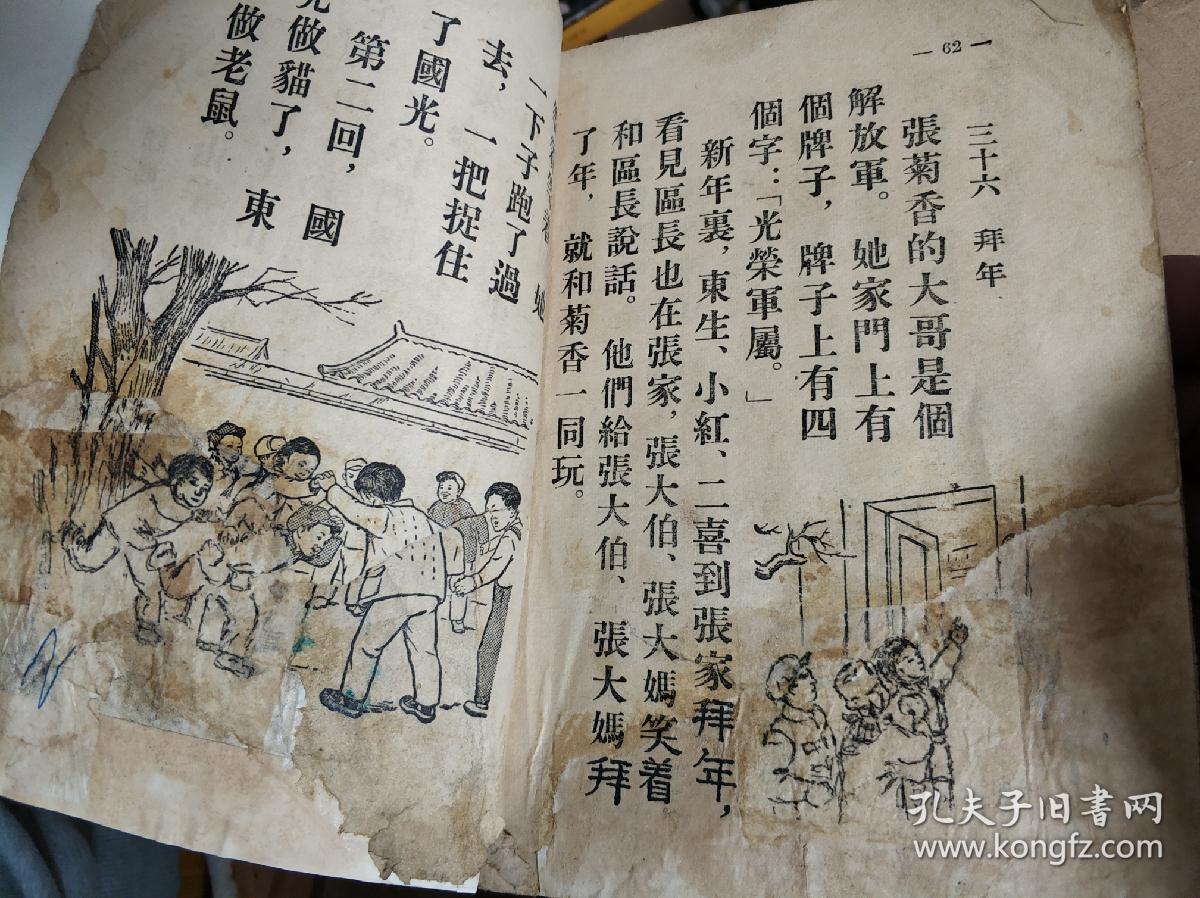 一下子跑了過
去，一把捉住
了國光。
第二回，國
做貓了，東
做老鼠。
— 62 —
三十六 拜年
張菊香的大哥是個
解放軍。她家門上有
個牌子，牌子上有四
個字：「光榮軍屬。」
新年裏，東生、小紅、二喜到張家拜年，
看見區長也在張家，張大伯、張大媽笑着
和區長說話。他們給張大伯、張大媽拜
了年，就和菊香一同玩。
孔夫子旧書网
www.kongfz.com